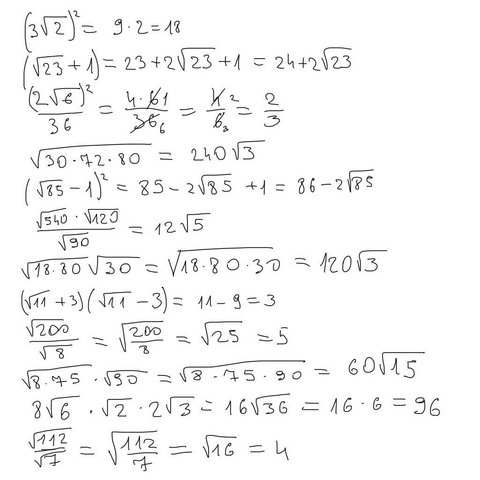 (3√2)² = 9·2=18
(√23 + 1) = 23+2√23+1 = 24+2√23
(2√6)²/36 = 4·61/366 = 4 2/6 3 = 2/3
√30·72·80 = 240√3
(√85 − 1)² = 85 − 2√85 + 1 = 86 − 2√85
√540 · √120/√90 = 12√5
√18·80 √30 = √18·80·30 = 120√3
(√11 + 3)(√11 − 3) = 11 − 9 = 3
√200/√8 = √200/8 = √25 = 5
√8·75 · √90 = √8·75·90 = 60√15
8√6 · √2 · 2√3 = 16√36 = 16·6 = 96
√112/√7 = √112/7 = √16 = 4